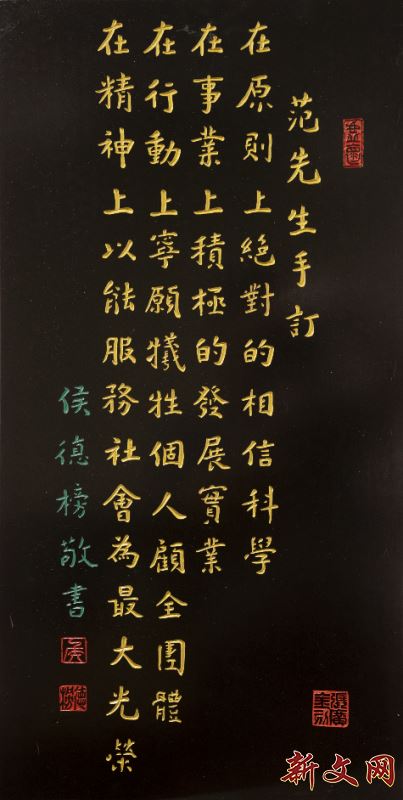 范先生手訂
在原則上絕對的相信科學
在事業上積極的發展實業
在行動上寧願犧牲個人顧全團體
在精神上以能服務社會為最大光榮
侯德榜敬書
新文网